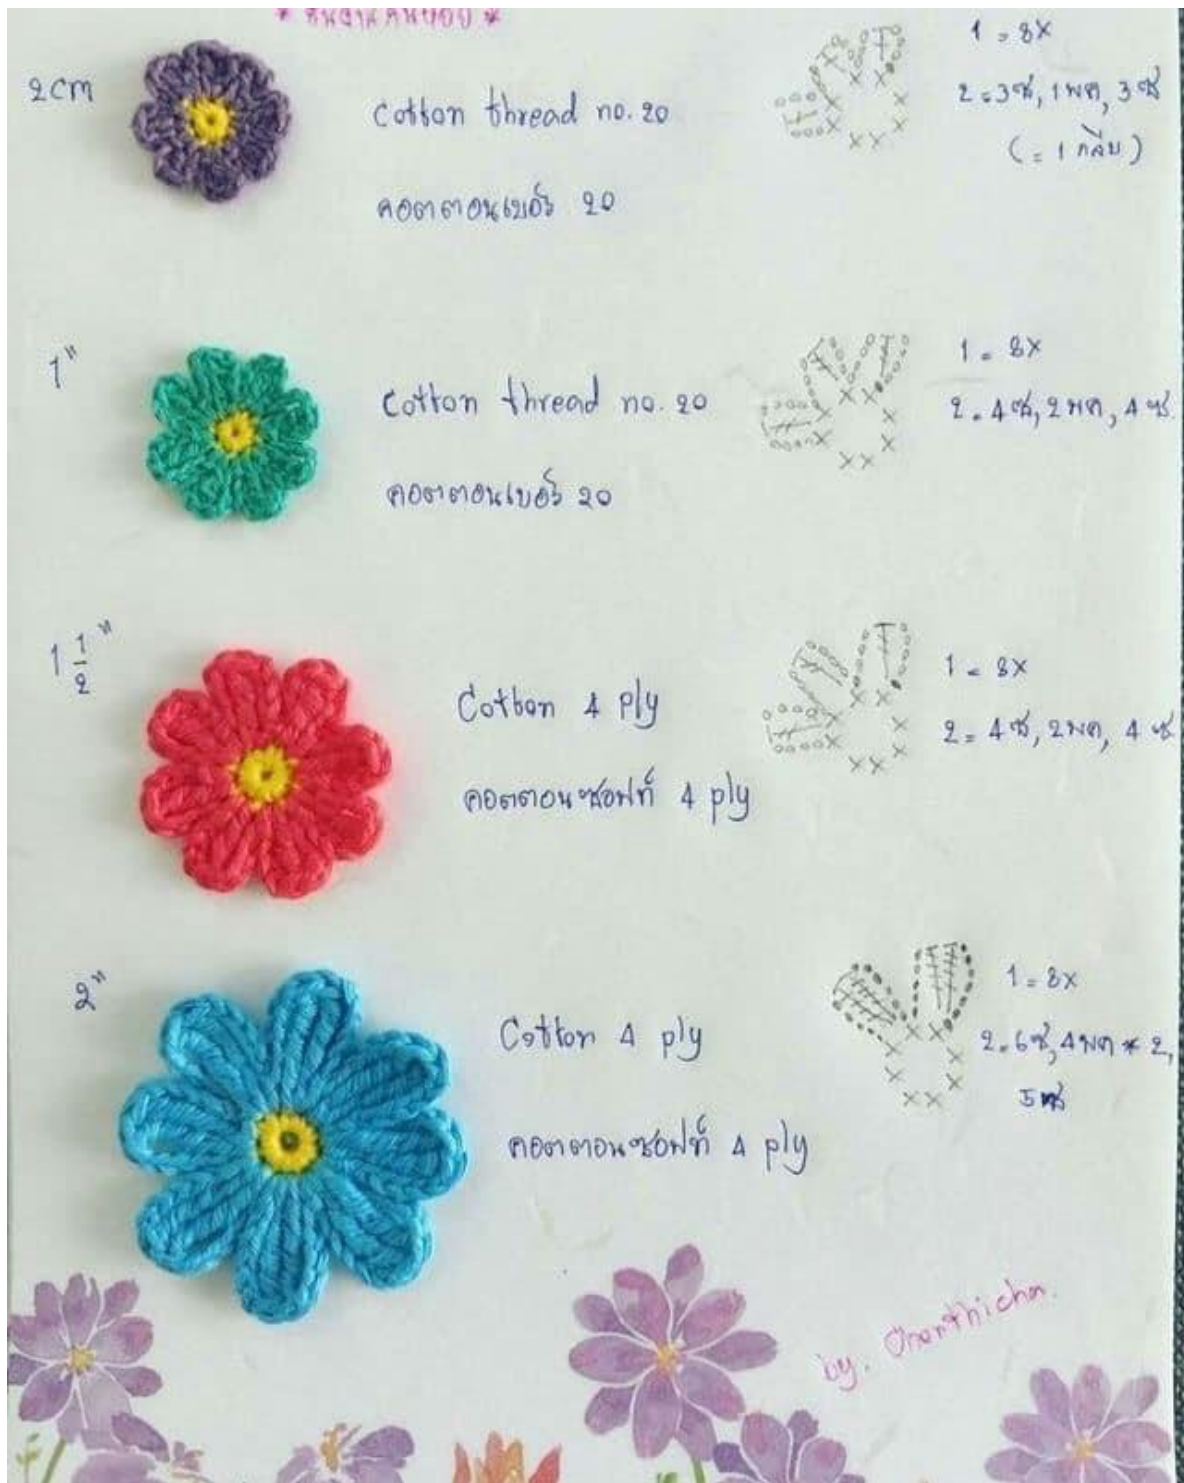 2cm
Cotton thread no. 20
คอตตอนเบอร์ 20
1 = 8X
2 = 3ซ, 1พค, 3ซ
(= 1 กลีบ)
1"
Cotton thread no. 20
คอตตอนเบอร์ 20
1 = 8X
2 = 4ซ, 2พค, 4ซ
1 1/2"
Cotton 4 ply
คอตตอนซอฟท์ 4 ply
1 = 8X
2 = 4ซ, 2พค, 4ซ
2"
Cotton 4 ply
คอตตอนซอฟท์ 4 ply
1 = 8X
2 = 6ซ, 4พค * 2,
5ซ
by. Ononthicha.